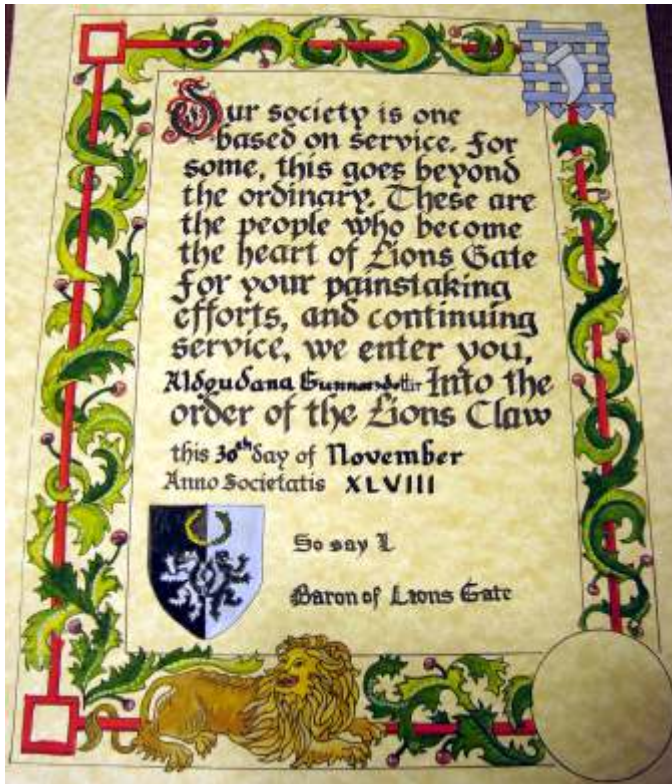 Our society is one
based on service. For
some, this goes beyond
the ordinary. These are
the people who become
the heart of Lions Gate
For your painstaking
efforts, and continuing
service, we enter you,
Aldgudana Gunnarsdottir Into the
order of the Lions Claw
this 30th day of November
Anno Societatis XLVIII
So say I
Baron of Lions Gate